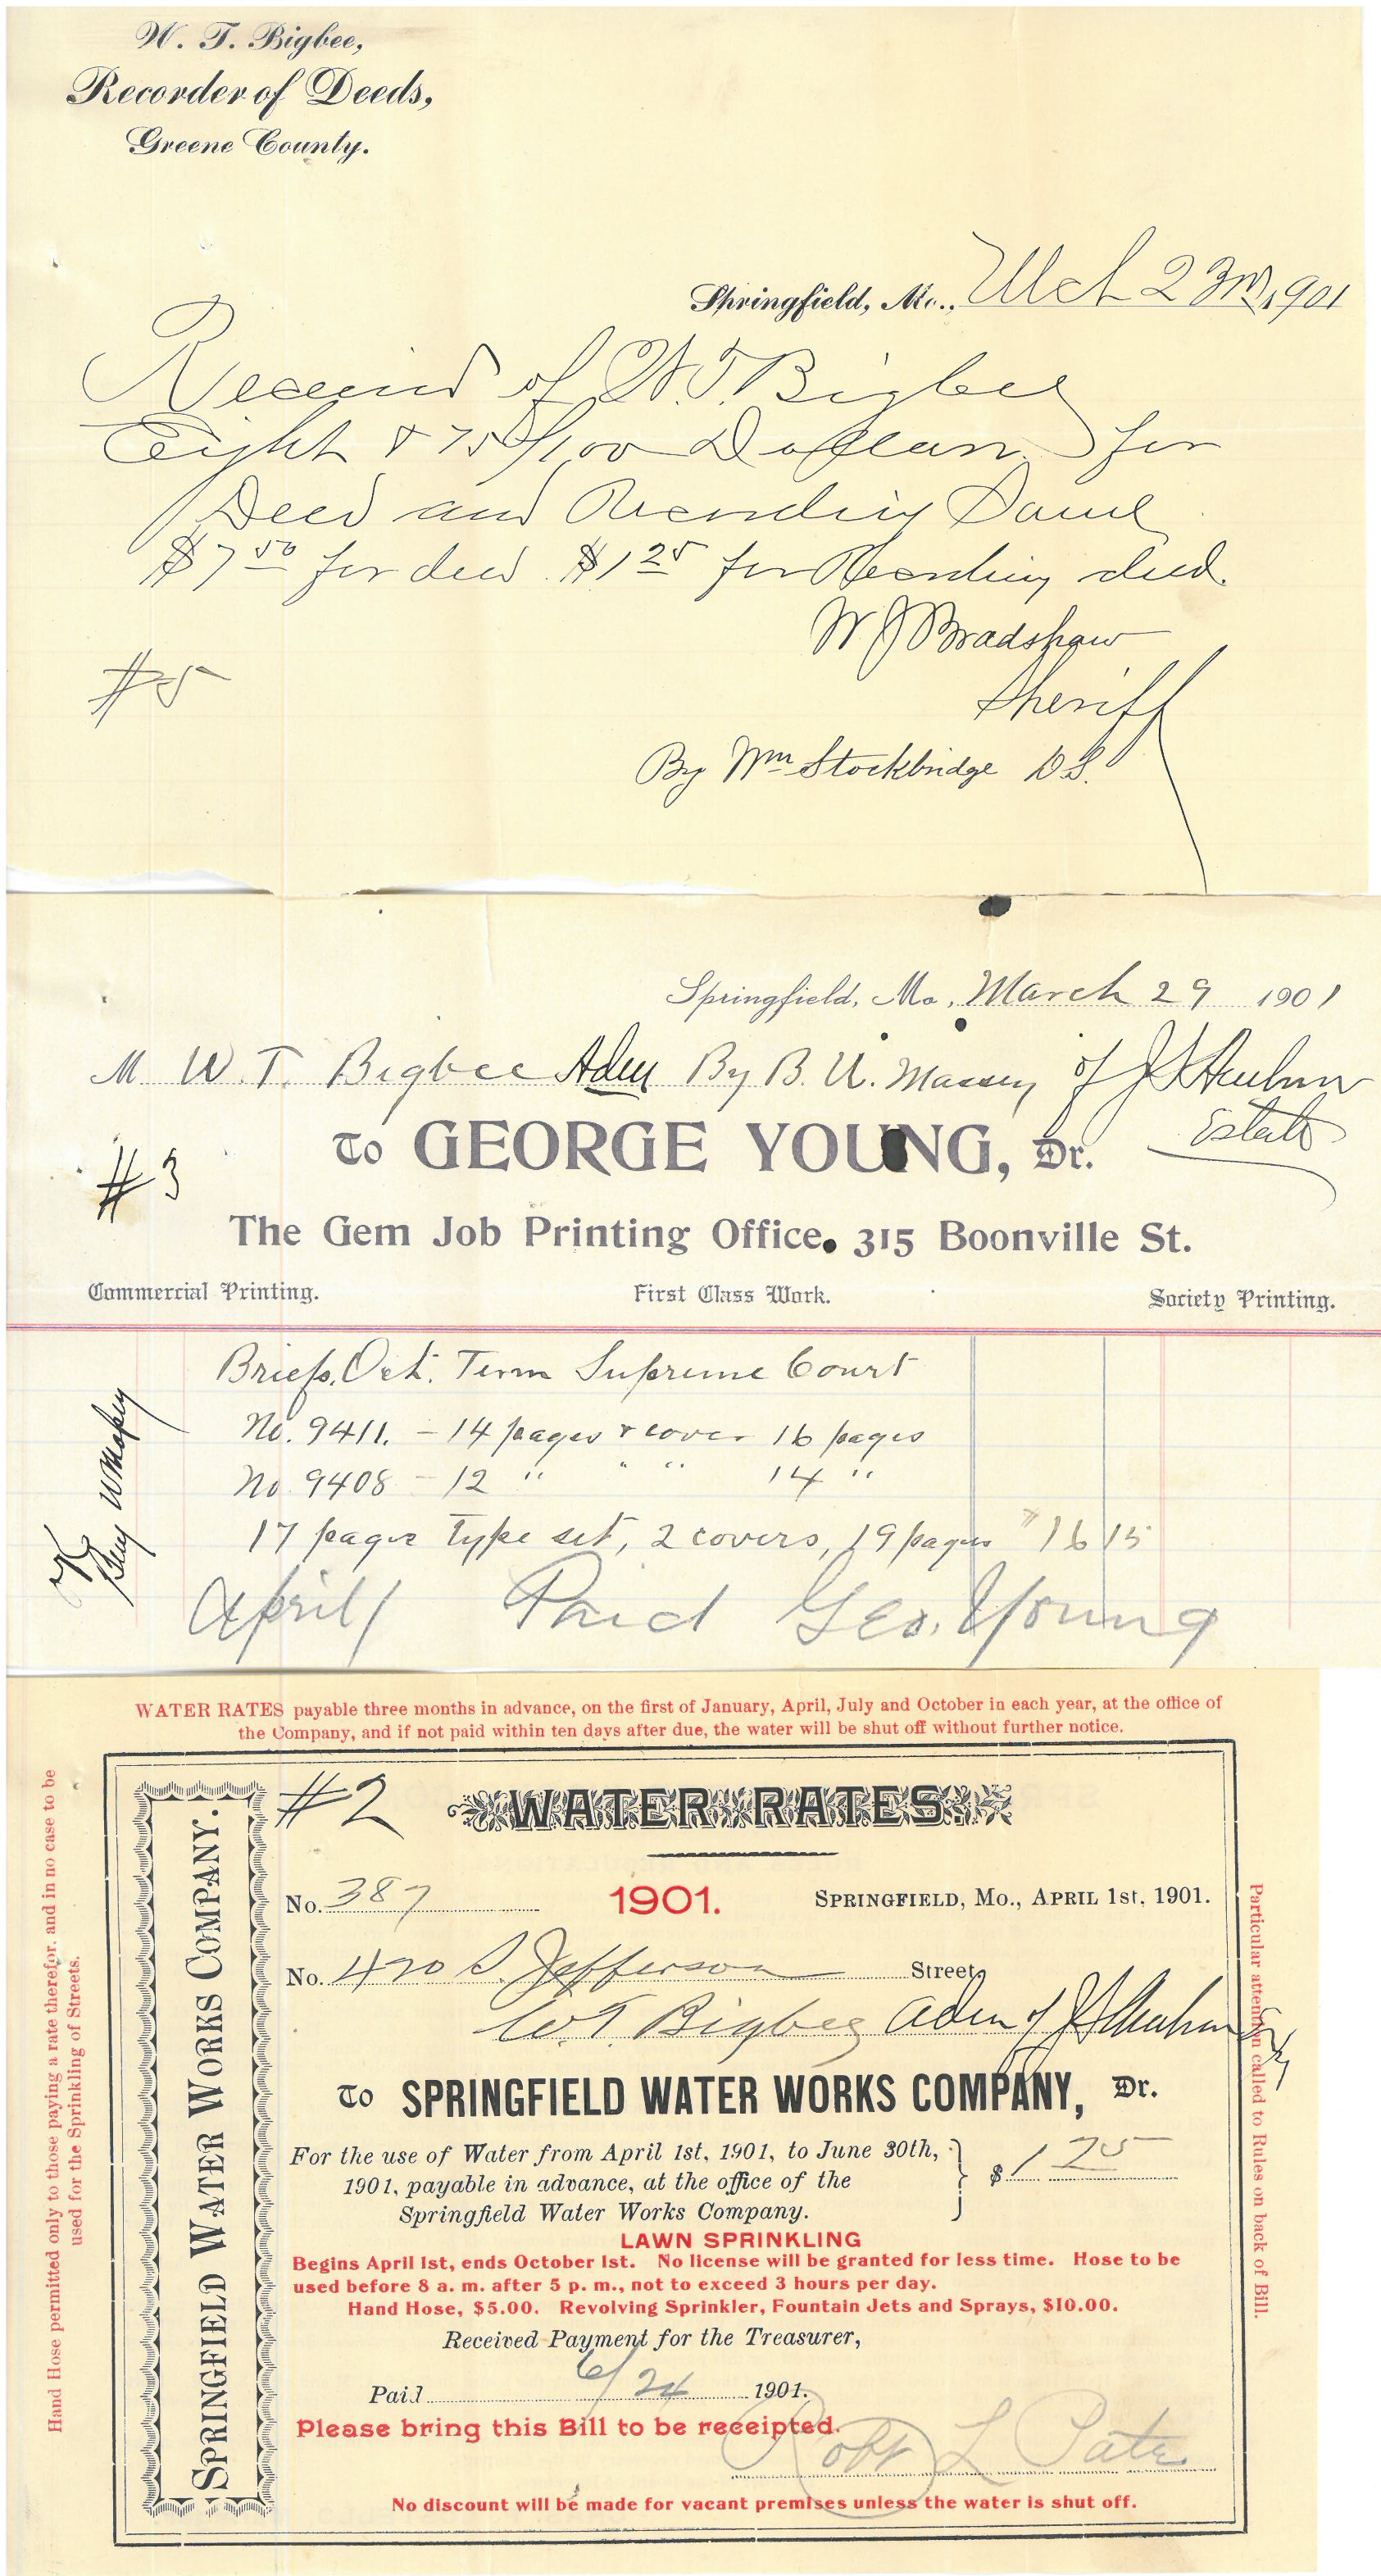 W. T. Bigbee,
Recorder of Deeds,
Greene County.
Springfield, Mo., Mch 23rd, 1901
Received of W. T. Bigbee
Eight & 75/100 Dollars for
Deed and Recording Same
$7 50 for deed. $1 25 for Recording deed.
W J Bradshaw
Sheriff
#5
By Wm Stockbridge D S.
Springfield, Mo., March 29 1901
M W. T. Bigbee Adm By B. U. Massey of J S
Estate
To GEORGE YOUNG, Dr.
#3
The Gem Job Printing Office. 315 Boonville St.
Commercial Printing. First Class Work. Society Printing.
Briefs, Oct. Term Supreme Court
No. 9411. - 14 pages & cover 16 pages
No. 9408 - 12 " " " 14 "
17 pages type set, 2 covers, 19 pages 16 15
OK
April 1 Paid Geo. Young
WATER RATES payable three months in advance, on the first of January, April, July and October in each year, at the office of
the Company, and if not paid within ten days after due, the water will be shut off without further notice.
Hand Hose permitted only to those paying a rate therefor, and in no case to be
used for the Sprinkling of Streets.
SPRINGFIELD WATER WORKS COMPANY.
#2
WATER RATES
No. 387 1901. SPRINGFIELD, Mo., APRIL 1st, 1901.
No. 420 S. Jefferson Street
W. T. Bigbee Adm of J S
To SPRINGFIELD WATER WORKS COMPANY, Dr.
For the use of Water from April 1st, 1901, to June 30th,
1901, payable in advance, at the office of the
Springfield Water Works Company.
$ 1 75
LAWN SPRINKLING
Begins April 1st, ends October 1st. No license will be granted for less time. Hose to be
used before 8 a. m. after 5 p. m., not to exceed 3 hours per day.
Hand Hose, $5.00. Revolving Sprinkler, Fountain Jets and Sprays, $10.00.
Received Payment for the Treasurer,
Paid 6/24 1901.
Please bring this Bill to be receipted.
Robt L Pate
No discount will be made for vacant premises unless the water is shut off.
Particular attention called to Rules on back of Bill.